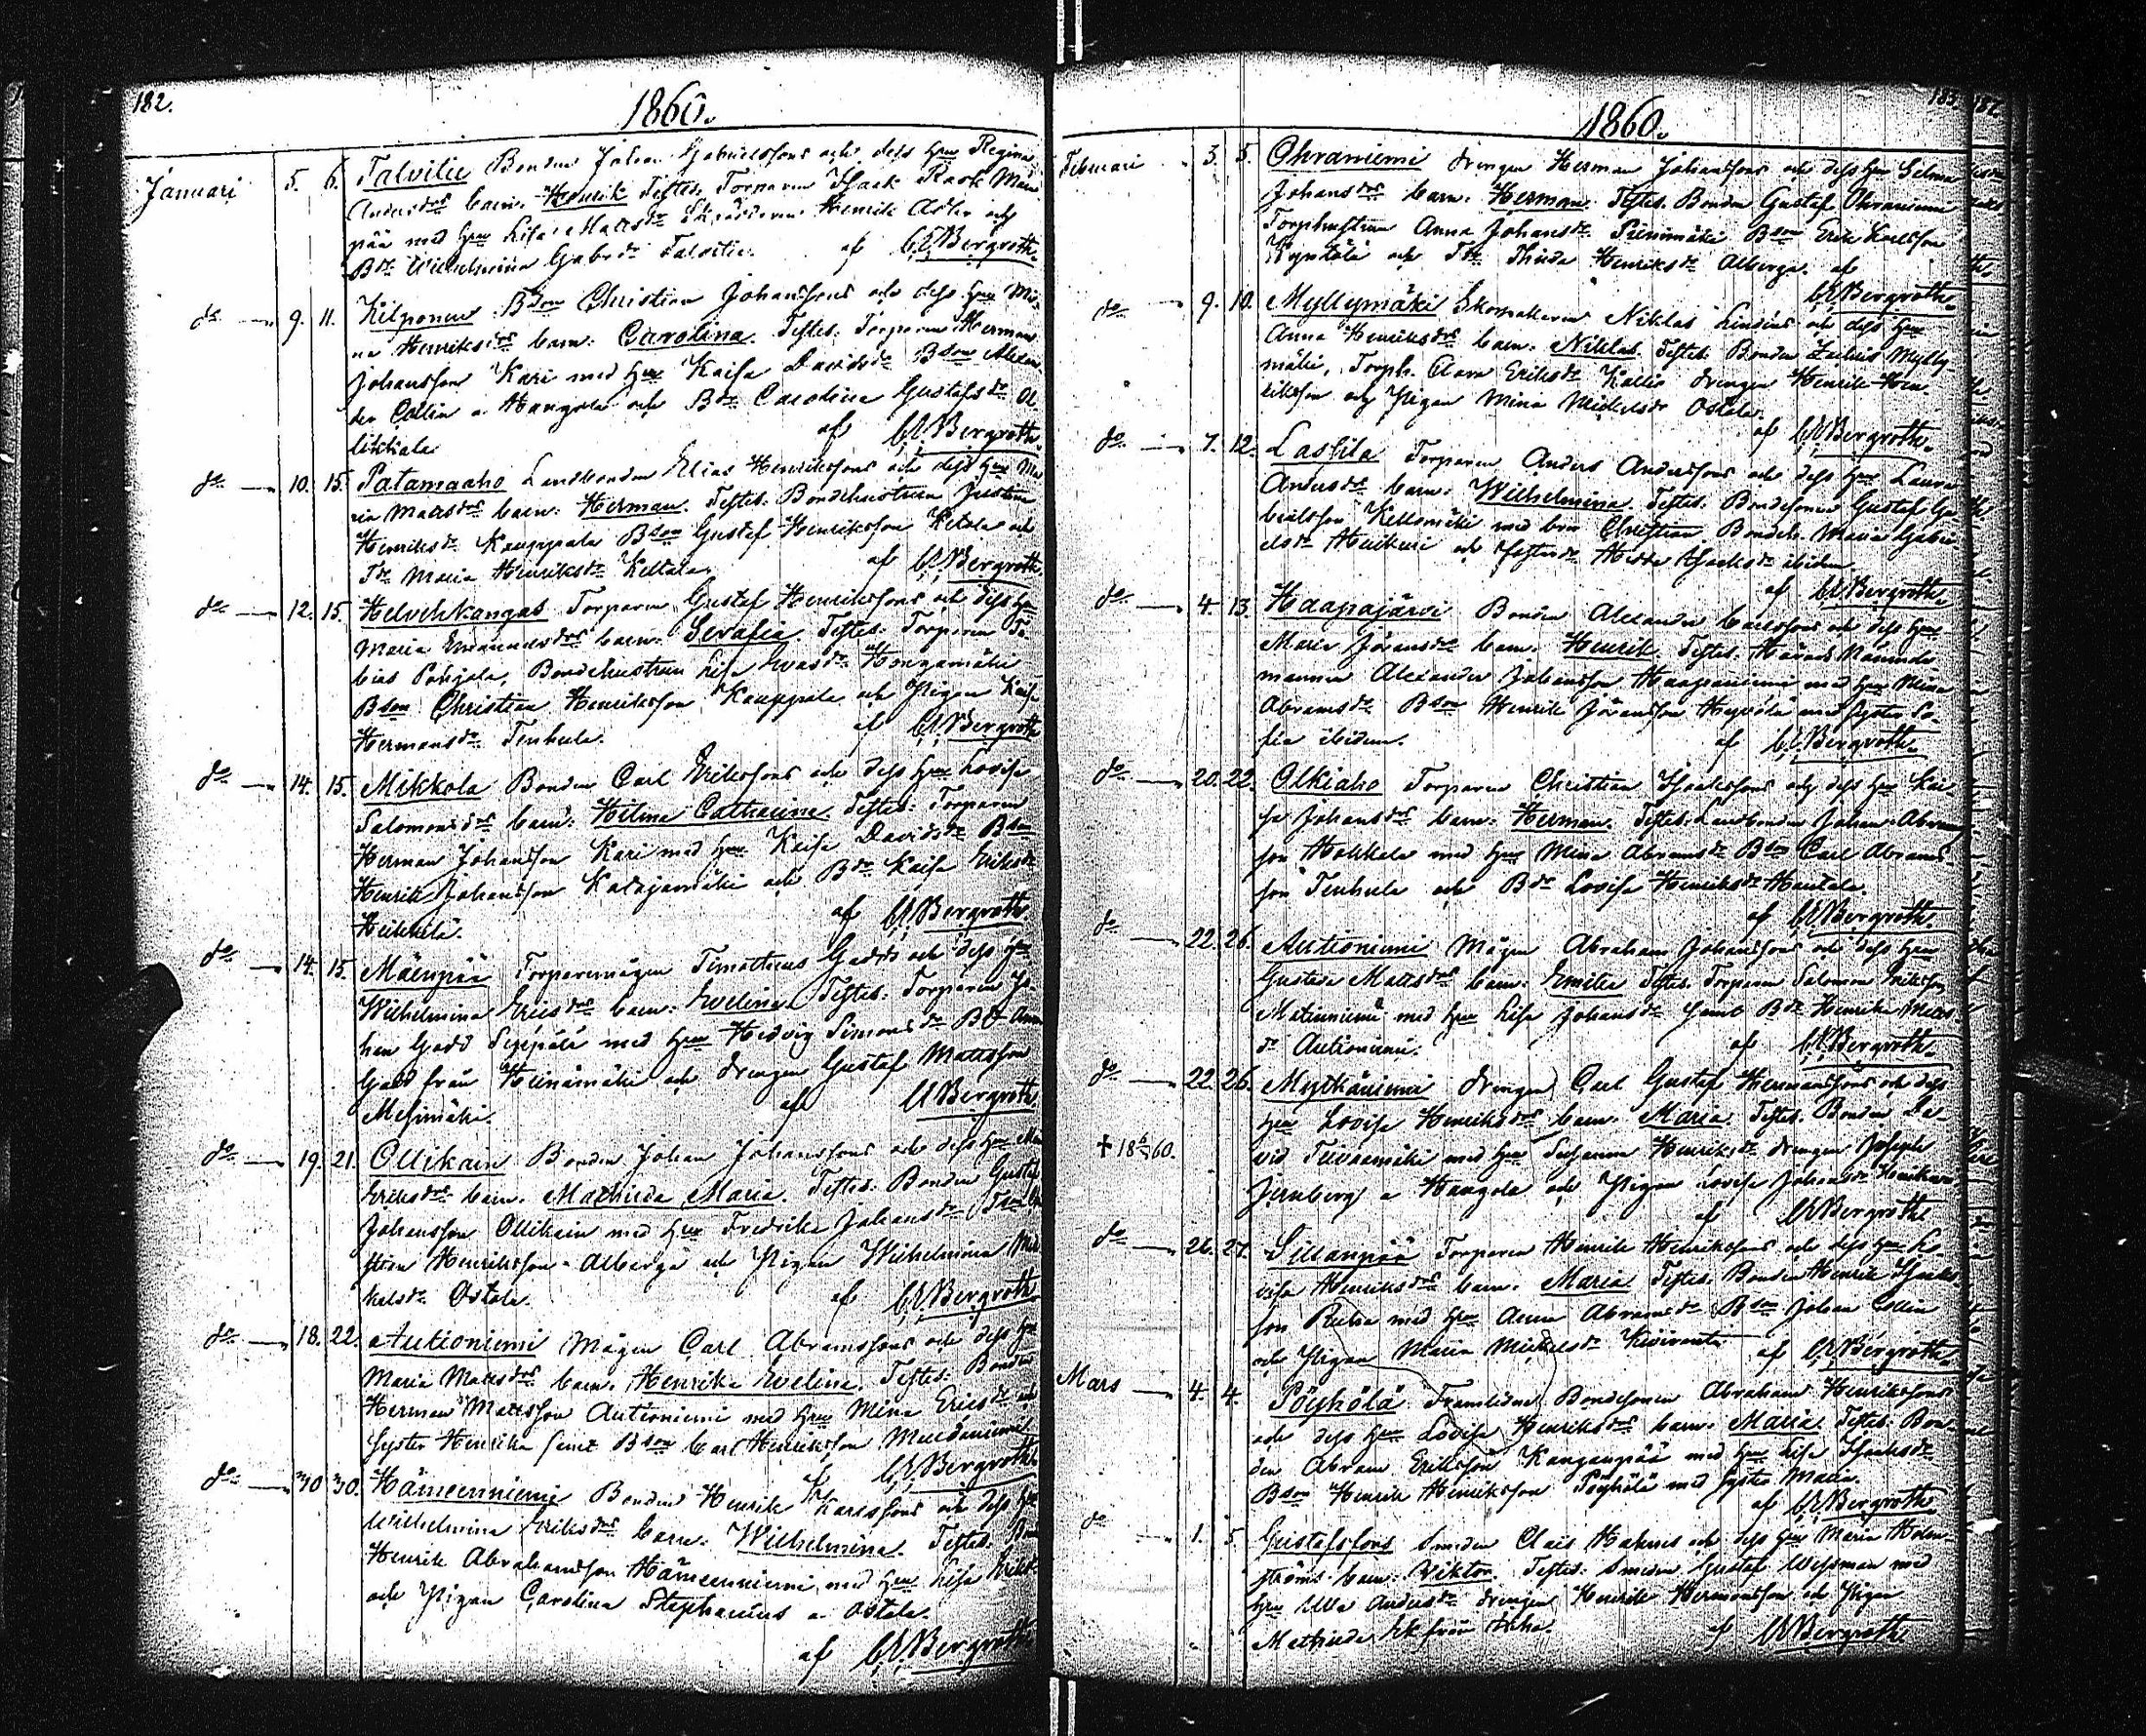 182.
1860.
Januari 5. 6. Talvitie Bonden Johan Gabrielssons och dess hru Regina
Andersdrs barn: Henrik Testes: Torparen Isaak Rask Mäen
pää med hru Lisa Mattsdr Skräddaren Henrik Adler och
Bdr Wilhelmina Gabrsdr Talvitie. af C.E. Bergroth.
do 9. 11. Kilponen Bson Christian Johanssons och dess hru Mi
na Henriksdrs barn: Carolina. Testes: Torparen Herman
Johansson Kari med hru Kaisa Davidsdr Bson Alexan
der Collin a Hangola och Bdr Carolina Gustafsdr Ol
likkala af C.E. Bergroth.
do 10. 15. Patamaaho Landbonden Elias Henrikssons och dess hru Ma
ria Mattsdrs barn: Herman. Testes: Bondehustrun Justina
Henriksdr Kauppala Bson Gustaf Henriksson Ketola och
Tdr Maria Henriksdr Keltala. af C.E. Bergroth.
do 12. 15. Helvehkangas Torparen Gustaf Henrikssons och dess hru
Maria Emanuelsdrs barn: Serafia. Testes: Torparen To
bias Pohjola, Bondehustrun Lisa Evasdr Hongamäki
Bson Christian Henriksson Kauppala och Pigan Kaisa
Hermansdr Tenhula. af C.E. Bergroth
do 14. 15. Mikkola Bonden Carl Erikssons och dess hru Lovisa
Salomonsdrs barn: Hilma Catharina. Testes: Torparen
Herman Johansson Kari med hru Kaisa Davidsdr Bson
Henrik Johansson Katajamäki och Bdr Kaisa Eriksdr
Heikkilä. af C.E. Bergroth.
do 14. 15. Mäenpää Torparemågen Timotheus Gadds och dess hru
Wilhelmina Ericsdrs barn: Evelina. Testes: Torparen Jo
han Gadd Seppälä med hru Hedvig Simonsdr Bdr Anna
Gadd från Heinämäki och Drengen Gustaf Mattsson
Mesimäki. af C.E. Bergroth.
do 19. 21. Ollikain Bonden Johan Johanssons och dess hru
Eriksdrs barn: Mathilda Maria. Testes: Bonden Gustaf
Johansson Ollikain med hru Fredrika Johansdr
Henriksson Alberga och Pigan Wilhelmina Mic
kelsdr Ostola. af C.E. Bergroth
do 18. 22. Autioniemi Mågen Carl Abramssons och dess hru
Maria Mattsdrs barn: Henrika Evelina. Testes: Bonden
Herman Mattsson Autioniemi med hru Mina Ericsdr och
Syster Henrika samt Bson Carl Henriksson
C.E. Bergroth
do 30 30. Hämeenniemi Bonden Henrik Karlssons och dess hru
Wilhelmina Eriksdrs barn: Wilhelmina. Testes:
Henrik Abrahamsson Hämeenniemi med hru Lisa
och Pigan Carolina Stephanius a Ostola.
af C.E. Bergroth
183.
1860.
Februari 3. 5. Ohraniemi Drengen Herman Johanssons och dess hru Selma
Johansdrs barn: Herman. Testes: Bonden Gustaf Ohraniemi
Torphustrun Anna Johansdr Pienimäki Bson Erik Karlsson
och Tdr Thilda Henriksdr Alberga. af
C.E. Bergroth.
do 9. 10. Myllymäki Skomakaren Niklas Lindéns och dess hru
Anna Henriksdrs barn: Niklas. Testes: Bonden Zachris Mylly
mäki, Torph. Clara Eriksdr Kallio Drengen Henrik Hen
riksson och Pigan Mina Mickelsdr Ostola.
af C.E. Bergroth.
do 7. 12. Lassila Torparen Anders Anderssons och dess hru Laura
Andersdr barn: Wilhelmina. Testes: Bondesonen Gustaf Ga
brielsson Kellomäki med bror Christian Bondeh. Maria Gabri
elsdr Heikuri och Hedda Isacksdr ibidem
af C.E. Bergroth.
do 4. 13. Haapajärvi Bonden Alexander Carlssons och dess hru
Maria Göransdr barn: Henrik. Testes: Härads Nämnde
mannen Alexander Johansson Haapaniemi med hru Mina
Abramsdr Bson Henrik Göransson Hyvölä med syster So
fia ibidem. af C.E. Bergroth.
do 20. 22. Olkiaho Torparen Christian Isackssons och dess hru Kai
sa Johansdrs barn: Herman. Testes: Landbonden Johan Abrams
son Hokkala med hru Mina Abramsdr Bson Carl Abrams
son Tenhula och Bdr Lovisa Henriksdr Hautala.
af C.E. Bergroth.
do 22. 26. Autioniemi Mågen Abraham Johanssons och dess hru
Gustava Mattsdrs barn: Emilia Testes: Torparen Salomon Eriksson
Matinniemi med hru Lisa Johansdr samt Bdr Henrika Matts
dr Autioniemi. af C.E. Bergroth.
do 22. 26. Myckäniemi Drengen Carl Gustaf Hermanssons och dess
hru Lovisa Henriksdrs barn: Maria. Testes: Bonden Da
✝ 18 6/4 60. vid Teivaamäki med hru Susanna Henriksdr Drengen Joseph
Jernberg a Hangola och Pigan Lovisa Johansdr
af C.E. Bergroth
do 26. 27. Sillanpää Torparen Henrik Henrikssons och dess hru Lo
visa Henriksdrs barn: Maria Testes: Bonden Henrik Isacks
son Ruha med hru Anna Abramsdr Bson Johan Collin
och Pigan Maria Mickelsdr Kiviranta af C.E. Bergroth
Mars 4. 4. Pöyhölä Framlidne Bondesonen Abraham Henrikssons
och dess hru Lovisa Henriksdrs barn: Maria. Testes: Bon
den Abram Eriksson Kangaspää med hru Lisa Isacksdr
Bson Henrik Henriksson Pöyhölä med syster Maria.
af C.E. Bergroth
do 1. 5 Gustafsfors Smeden Claes Hahnes och dess hru Maria Holm
ströms barn: Viktor. Testes: Smeden Gustaf Wessman med
hru Ulla Andersdr Drengen Henrik Hermansson och Pigan
Mathilda Ek från af C.E. Bergroth